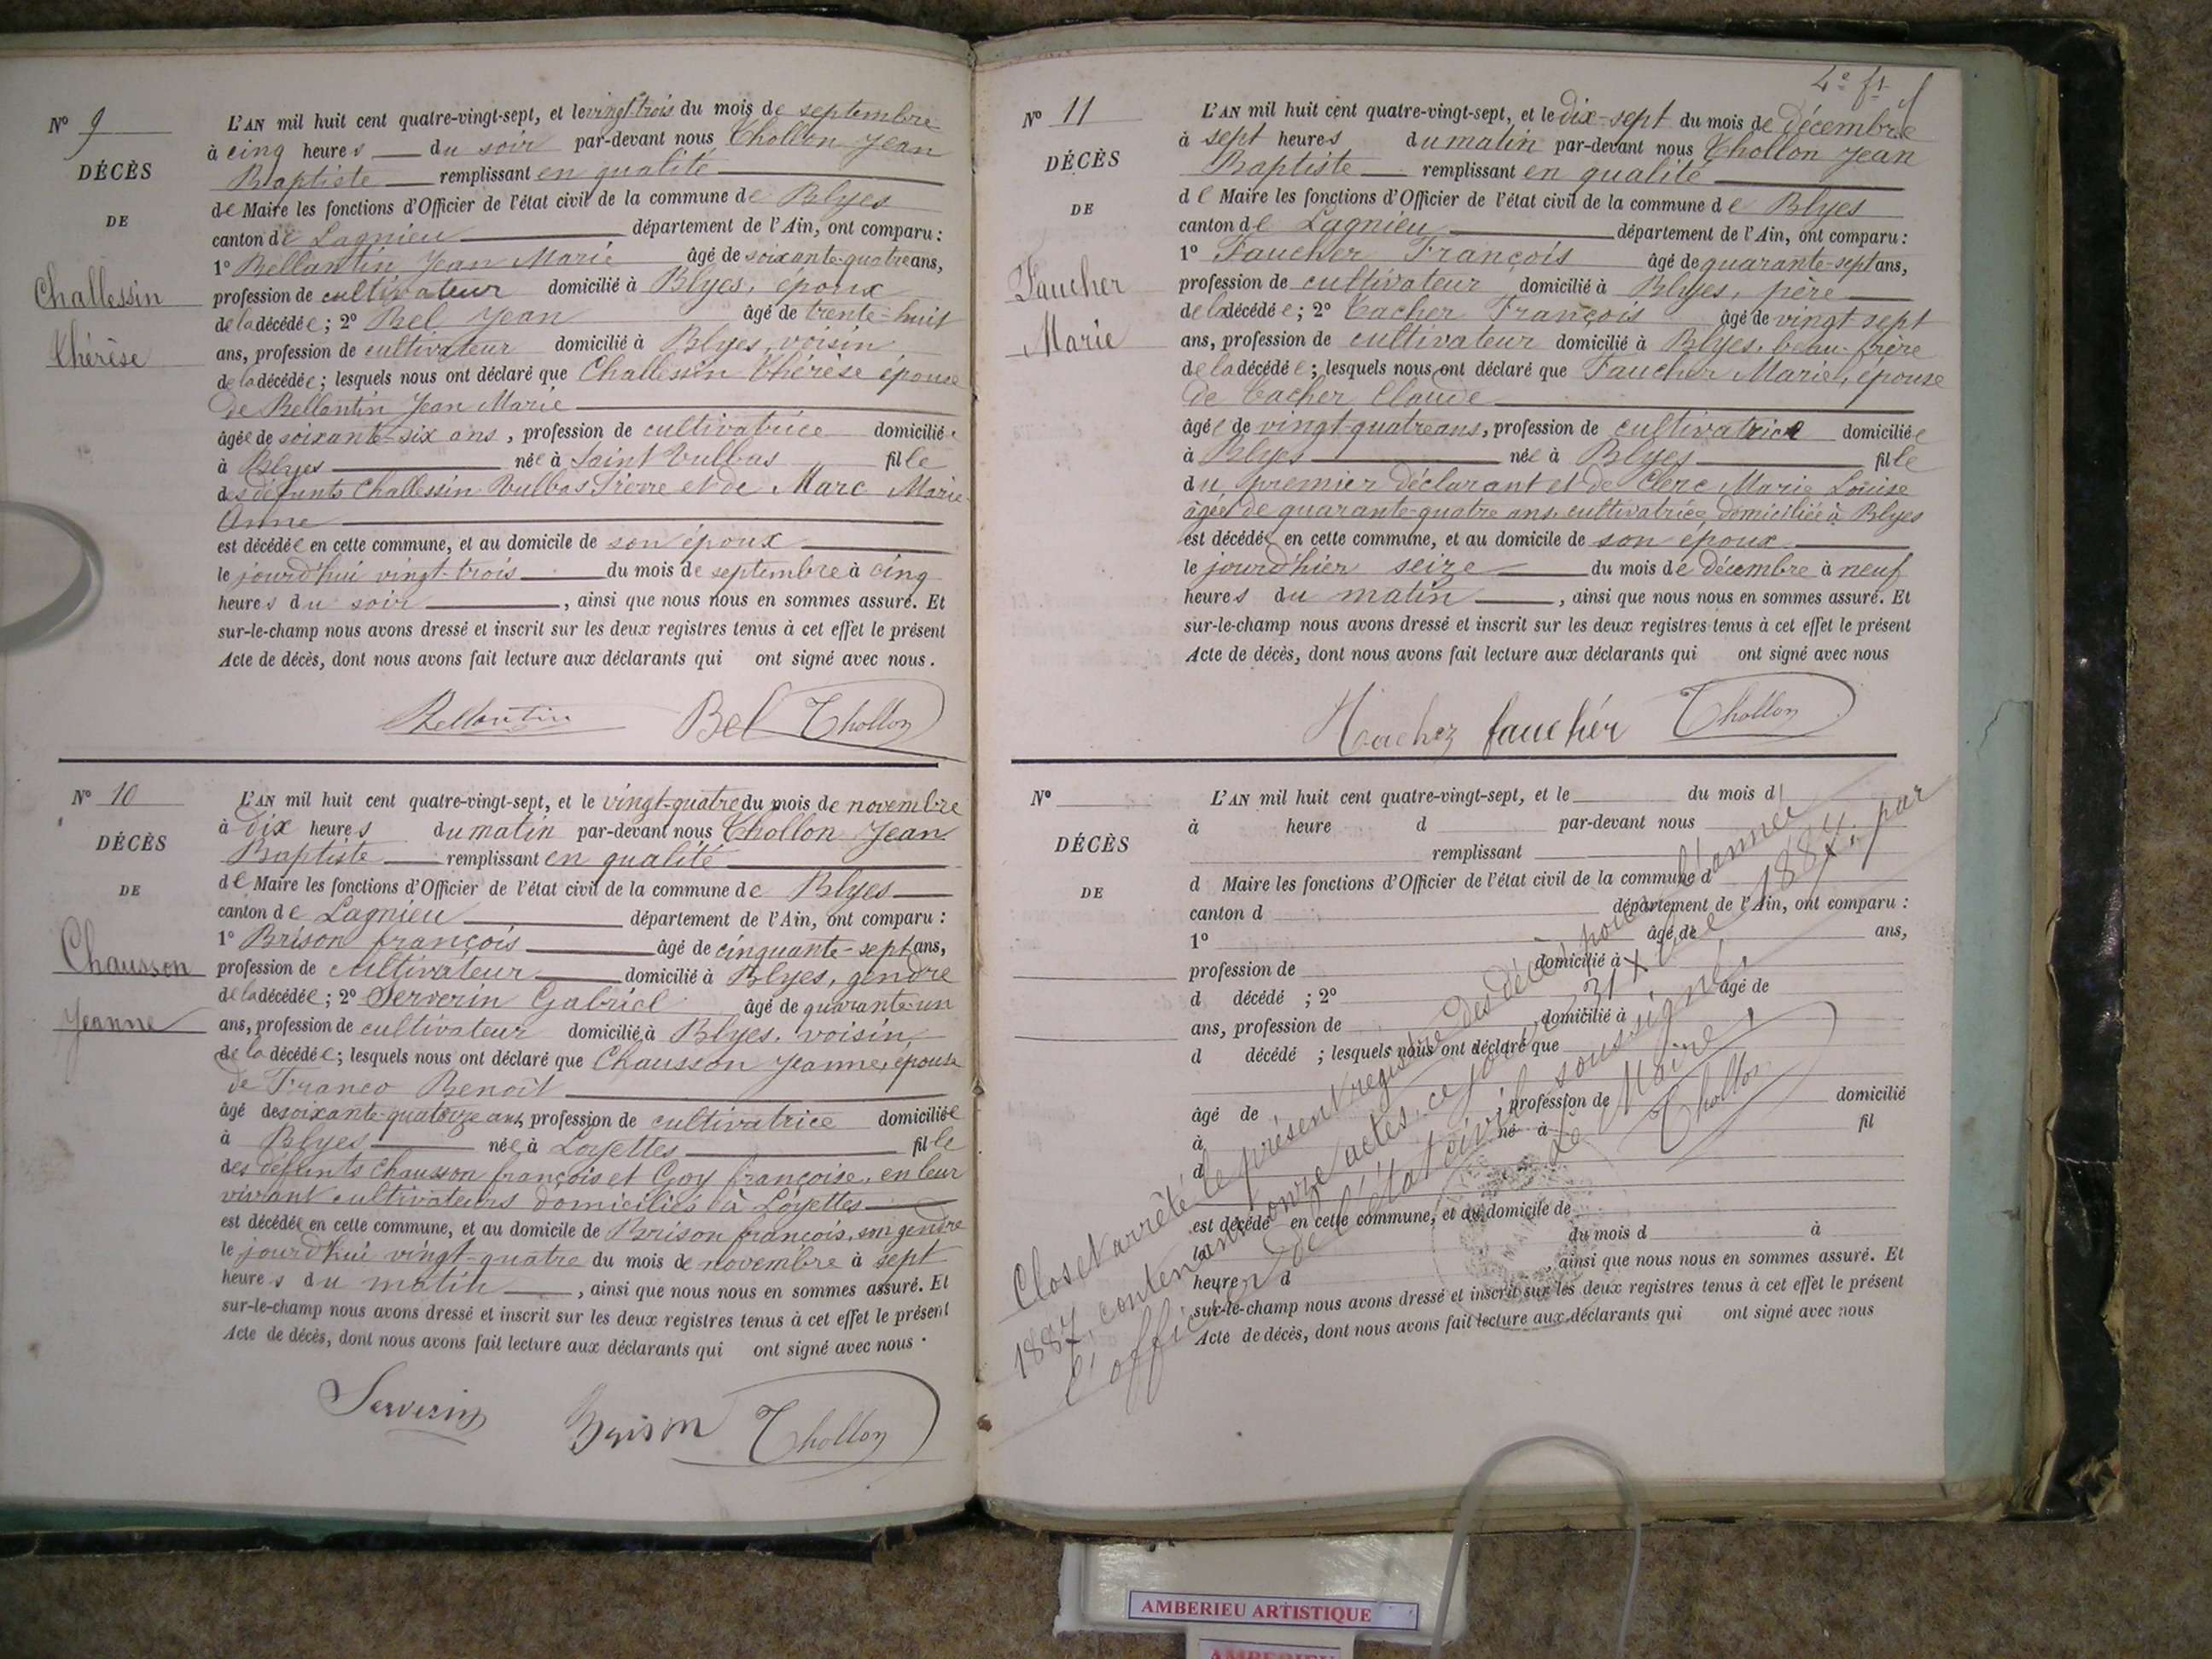 Nº 9
DÉCÈS
DE
Challessin
Thérèse
L'AN mil huit cent quatre-vingt-sept, et le vingt-trois du mois de septembre
à cinq heures du soir par-devant nous Thollon Jean
Baptiste remplissant en qualité
de Maire les fonctions d'Officier de l'état civil de la commune de Blyes
canton de Lagnieu département de l'Ain, ont comparu :
1º Bellantin Jean Marie âgé de soixante-quatre ans,
profession de cultivateur domicilié à Blyes, époux
de la décédée ; 2º Bel Jean âgé de trente-huit
ans, profession de cultivateur domicilié à Blyes, voisin
de la décédée ; lesquels nous ont déclaré que Challessin Thérèse épouse
de Bellantin Jean Marie
âgée de soixante-six ans, profession de cultivatrice domiciliée
à Blyes née à Saint Vulbas fille
des défunts Challessin Vulbas Pierre et de Marc Marie
Anne
est décédée en cette commune, et au domicile de son époux
le jourd'hui vingt-trois du mois de septembre à cinq
heures du soir, ainsi que nous nous en sommes assuré. Et
sur-le-champ nous avons dressé et inscrit sur les deux registres tenus à cet effet le présent
Acte de décès, dont nous avons fait lecture aux déclarants qui ont signé avec nous.
Bellantin Bel Thollon
Nº 10
DÉCÈS
DE
Chausson
Jeanne
L'AN mil huit cent quatre-vingt-sept, et le vingt-quatre du mois de novembre
à dix heures du matin par-devant nous Thollon Jean
Baptiste remplissant en qualité
de Maire les fonctions d'Officier de l'état civil de la commune de Blyes
canton de Lagnieu département de l'Ain, ont comparu :
1º Brison françois âgé de cinquante-sept ans,
profession de cultivateur domicilié à Blyes, gendre
de la décédée ; 2º Serverin Gabriel âgé de quarante-un
ans, profession de cultivateur domicilié à Blyes, voisin,
de la décédée ; lesquels nous ont déclaré que Chausson Jeanne, épouse
de Franco Benoît
âgé de soixante-quatorze ans, profession de cultivatrice domiciliée
à Blyes née à Loyettes fille
des défunts Chausson françois et Goy françoise, en leur
vivant cultivateurs domiciliés à Loyettes
est décédée en cette commune, et au domicile de Brison françois, son gendre
le jourd'hui vingt-quatre du mois de novembre à sept
heures du matin, ainsi que nous nous en sommes assuré. Et
sur-le-champ nous avons dressé et inscrit sur les deux registres tenus à cet effet le présent
Acte de décès, dont nous avons fait lecture aux déclarants qui ont signé avec nous.
Serverin Brison Thollon
4e ft
Nº 11
DÉCÈS
DE
Faucher
Marie
L'AN mil huit cent quatre-vingt-sept, et le dix-sept du mois de décembre
à sept heures du matin par-devant nous Thollon Jean
Baptiste remplissant en qualité
de Maire les fonctions d'Officier de l'état civil de la commune de Blyes
canton de Lagnieu département de l'Ain, ont comparu :
1º Faucher François âgé de quarante-sept ans,
profession de cultivateur domicilié à Blyes, père
de la décédée ; 2º Cacher François âgé de vingt-sept
ans, profession de cultivateur domicilié à Blyes, beau-frère
de la décédée ; lesquels nous ont déclaré que Faucher Marie, épouse
de Cacher Claude
âgée de vingt-quatre ans, profession de cultivatrice domiciliée
à Blyes née à Blyes fille
du premier déclarant et de Clerc Marie Louise
âgée de quarante-quatre ans, cultivatrice, domiciliée à Blyes
est décédée en cette commune, et au domicile de son époux
le jourd'hier seize du mois de décembre à neuf
heures du matin, ainsi que nous nous en sommes assuré. Et
sur-le-champ nous avons dressé et inscrit sur les deux registres tenus à cet effet le présent
Acte de décès, dont nous avons fait lecture aux déclarants qui ont signé avec nous
faucher Thollon
Nº
DÉCÈS
DE
L'AN mil huit cent quatre-vingt-sept, et le du mois d
à heure d par-devant nous
remplissant
d Maire les fonctions d'Officier de l'état civil de la commune d
canton d département de l'Ain, ont comparu :
1º âgé de ans,
profession de domicilié à
d décédé ; 2º âgé de
ans, profession de domicilié à
d décédé ; lesquels nous ont déclaré que
âgé de, profession de domicilié
à né à fil
d
est décédé en cette commune, et au domicile de
le du mois d à
heure d, ainsi que nous nous en sommes assuré. Et
sur-le-champ nous avons dressé et inscrit sur les deux registres tenus à cet effet le présent
Acte de décès, dont nous avons fait lecture aux déclarants qui ont signé avec nous
Clos et arrêté le présent registre des décès pour l'année
1887, contenant onze actes, ce jourd'hui 31 Xbre 1887, par
l'officier de l'état civil soussigné.
Le Maire,
Thollon
AMBERIEU ARTISTIQUE
AMBERIEU